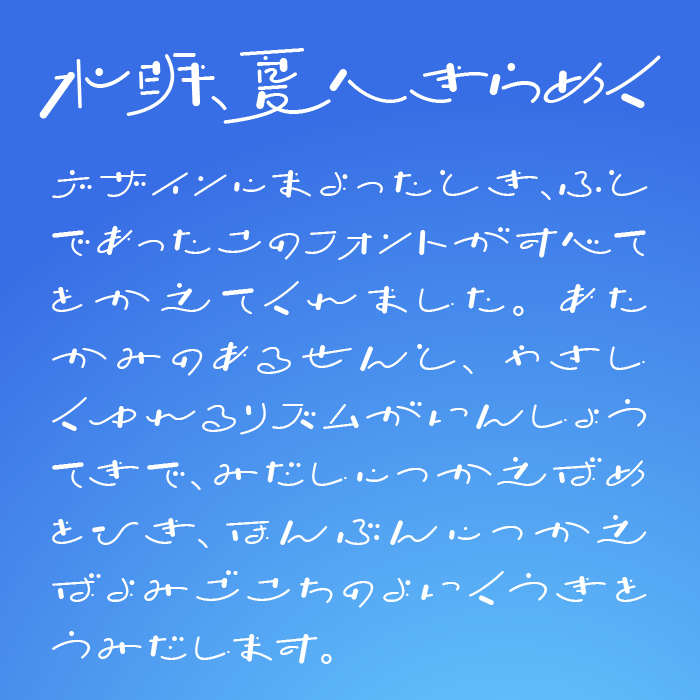 夏へきらめく
デザインにまよったとき、ふと
であったこのフォントがすべて
をかえてくれました。あた
かみのあるせんと、やさし
くゆれるリズムがいんしょう
てきで、みだしにつかえばめ
をひき、ほんぶんにつかえ
ばよみごこちのよいくうきを
うみだします。